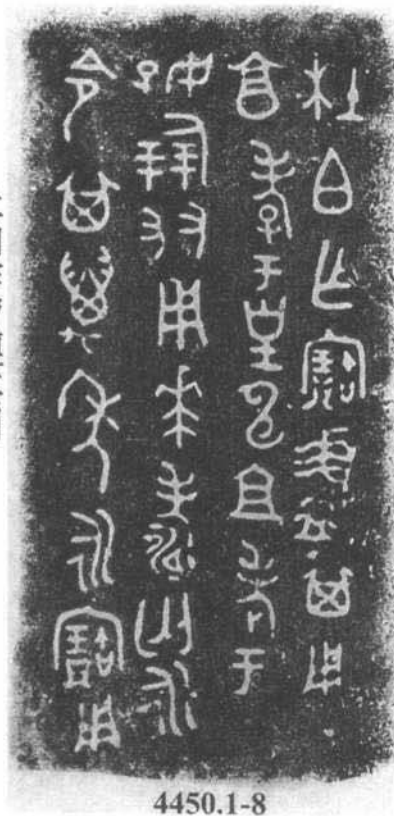 杜白乍寶盨其用
享孝于皇申且考于
好倗友用𠦪壽匄永
令其萬年永寶用
4450.1-8